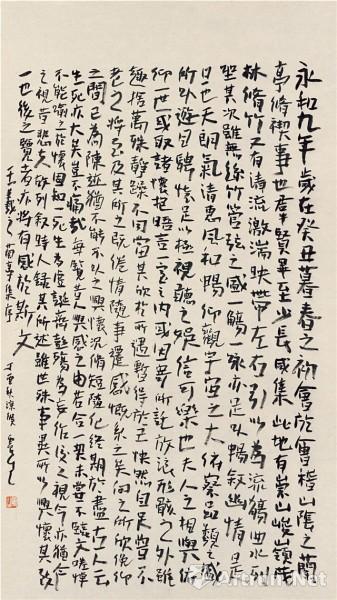 永和九年歲在癸丑暮春之初會於會稽山陰之蘭
亭脩禊事也羣賢畢至少長咸集此地有崇山峻嶺茂
林脩竹又有清流激湍映帶左右引以為流觴曲水列
坐其次雖無絲竹管弦之盛一觴一詠亦足以暢敘幽情是
日也天朗氣清惠風和暢仰觀宇宙之大俯察品類之盛
所以遊目騁懷足以極視聽之娛信可樂也夫人之相與俯
仰一世或取諸懷抱晤言一室之內或因寄所託放浪形骸之外雖
趣捨萬殊靜躁不同當其欣於所遇暫得於己快然自足曾不
老之將至及其所之既惓情隨事遷感慨係之矣向之所欣俛仰
之間已為陳迹猶不能不以之興懷況脩短隨化終期於盡古人云
生死亦大矣豈不痛哉每覽昔人興感之由若合一契未嘗不臨文嗟悼
不能喻之於懷固知一死生為虛誕齊彭殤為妄作後之視今亦猶今
之視昔悲夫故列敘時人錄其所述雖世殊事異所以興懷其致
一也後之覽者亦將有感於斯文
王羲之蘭亭集序
Artron.Net